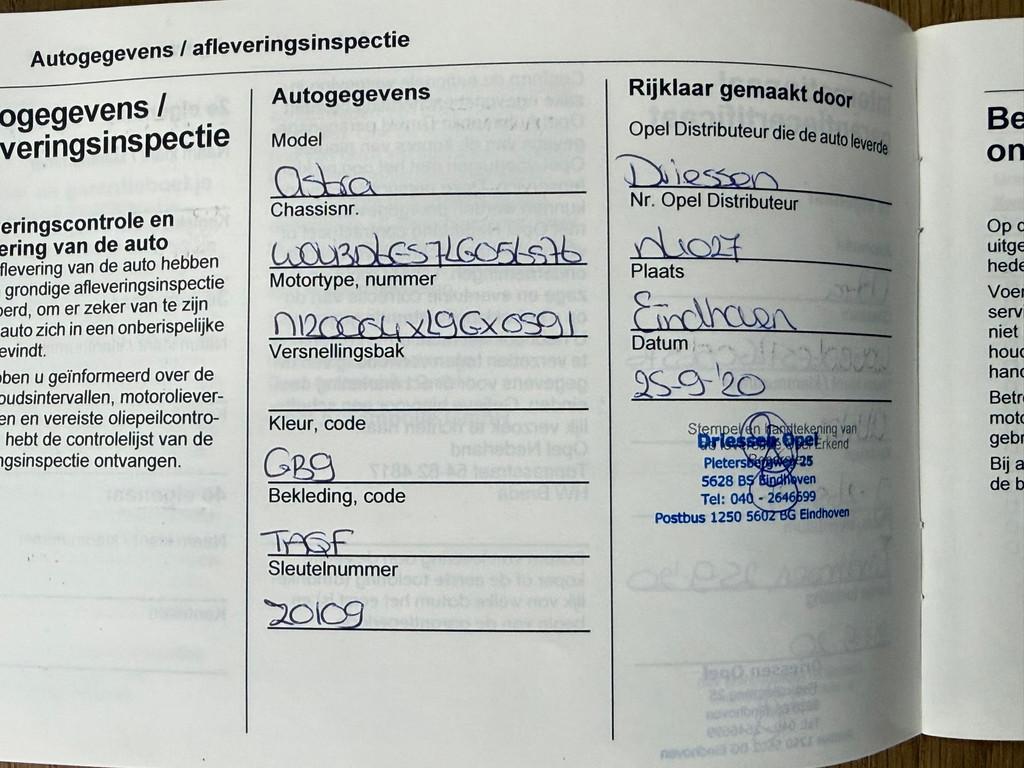 Autogegevens / afleveringsinspectie
ogegevens /
veringsinspectie
eringscontrole en
ering van de auto
flevering van de auto hebben
grondige afleveringsinspectie
oerd, om er zeker van te zijn
auto zich in een onberispelijke
evindt.
ben u geïnformeerd over de
oudsintervallen, motoroliever-
en en vereiste oliepeilcontro-
hebt de controlelijst van de
ngsinspectie ontvangen.
Autogegevens
Model
Astra
Chassisnr.
Motortype, nummer
Versnellingsbak
Kleur, code
GB9
Bekleding, code
TAGF
Sleutelnummer
20109
Rijklaar gemaakt door
Opel Distributeur die de auto leverde
Driessen
Nr. Opel Distributeur
NL027
Plaats
Eindhoven
Datum
25-9-'20
Stempel en handtekening van
Erkend
Driessen Opel
Pietersbergweg 25
5628 BS Eindhoven
Tel: 040 - 2646699
Postbus 1250 5602 BG Eindhoven
Be
on
Op d
uitge
hede
Voer
servi
niet
houd
hand
Betr
moto
gebr
Bij a
de b